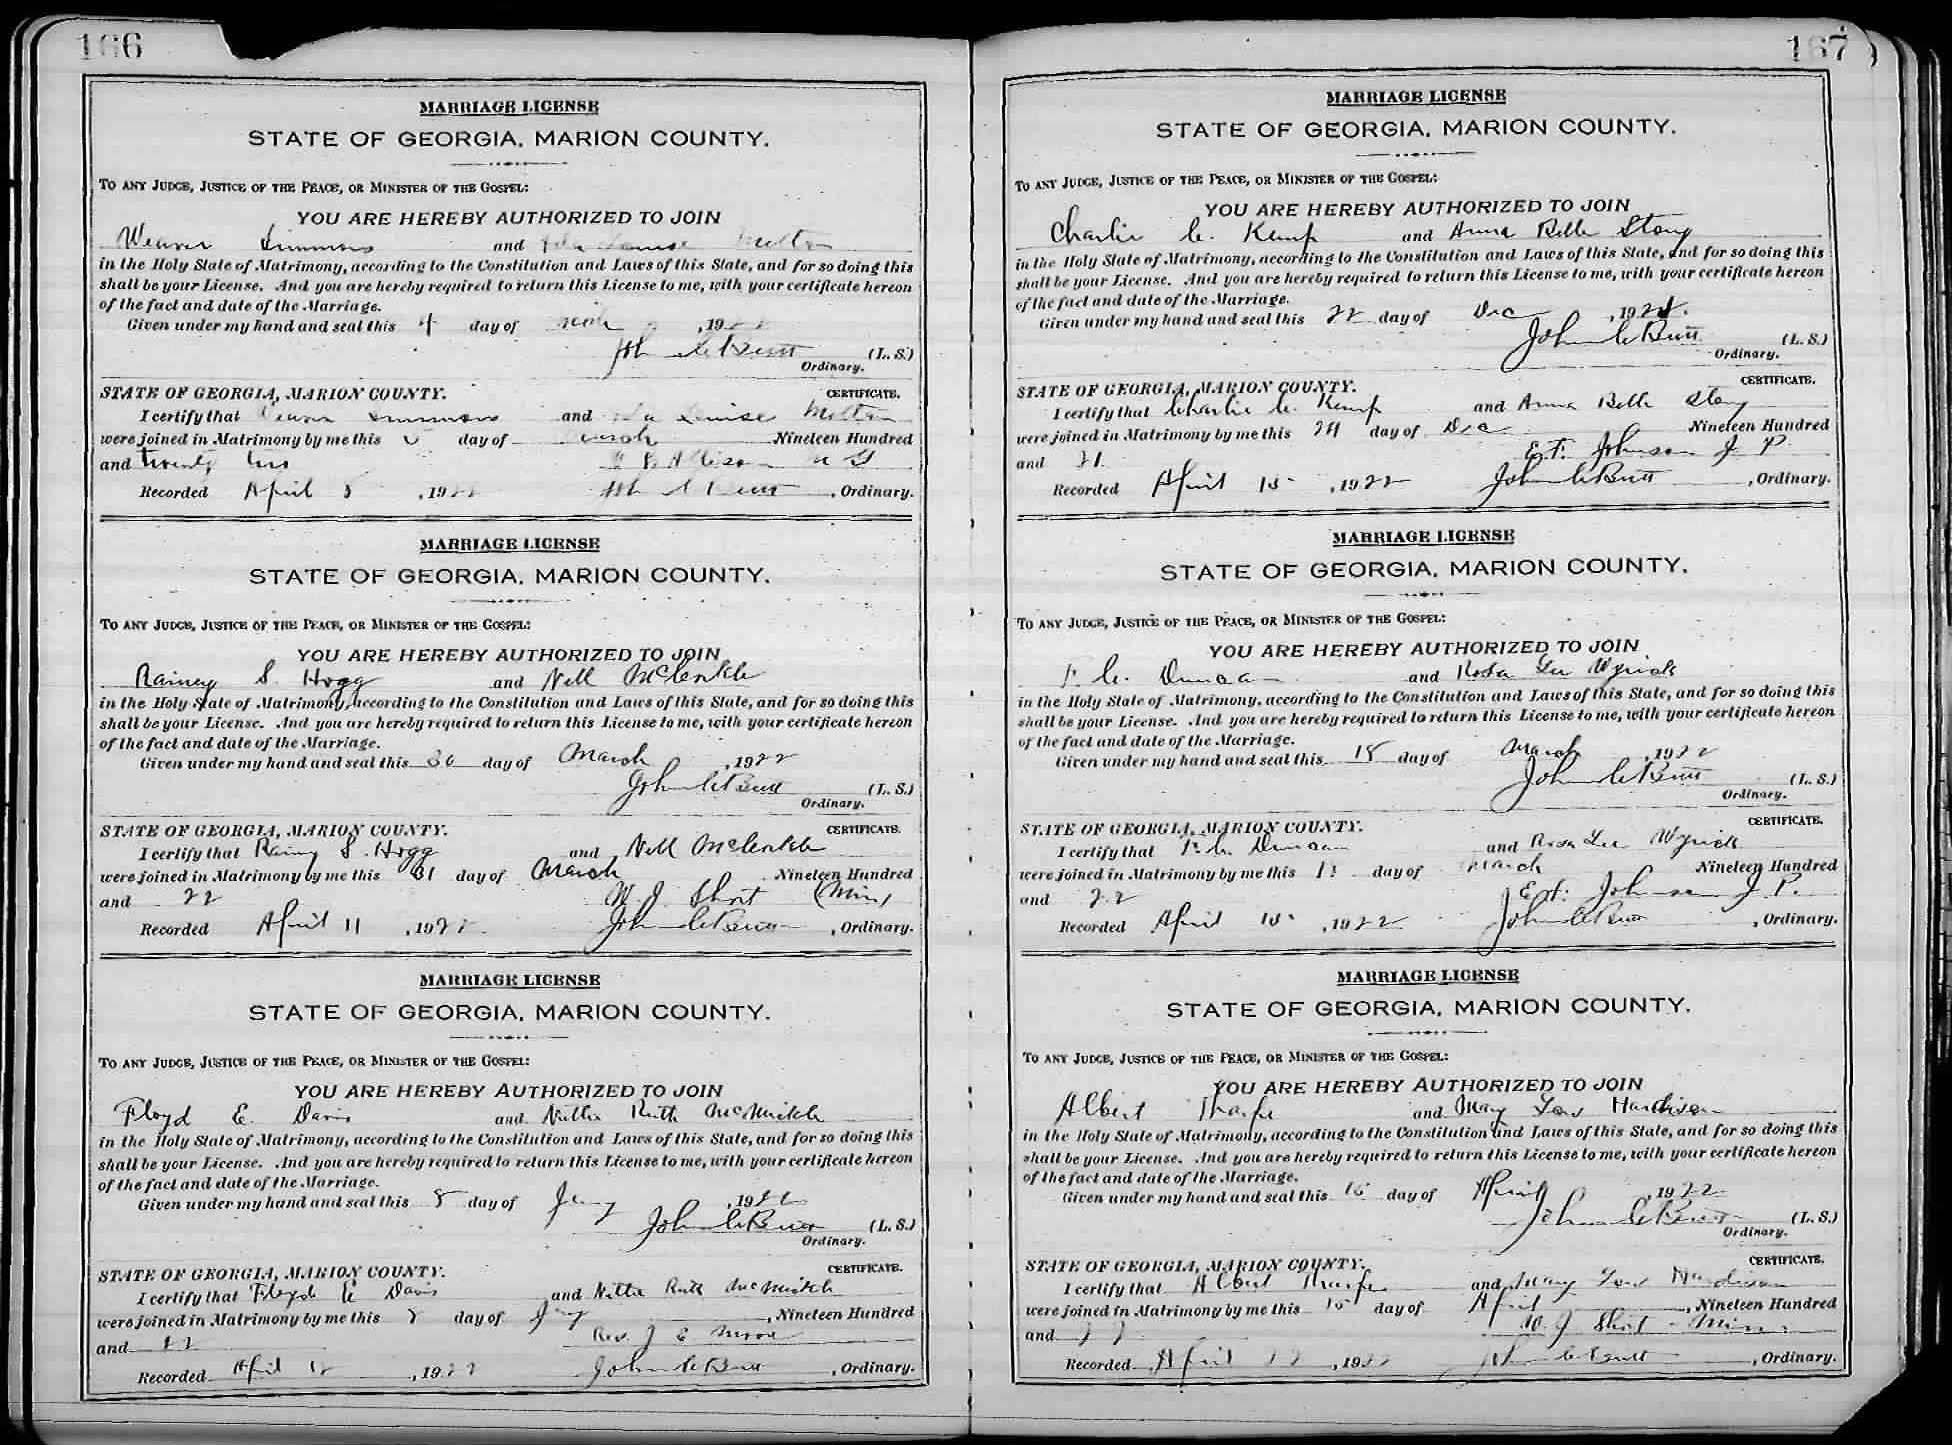 166
MARRIAGE LICENSE
STATE OF GEORGIA, MARION COUNTY.
TO ANY JUDGE, JUSTICE OF THE PEACE, OR MINISTER OF THE GOSPEL:
YOU ARE HEREBY AUTHORIZED TO JOIN
Weaver Simmons and Louise Melton
in the Holy State of Matrimony, according to the Constitution and Laws of this State, and for so doing this
shall be your License. And you are hereby required to return this License to me, with your certificate hereon
of the fact and date of the Marriage.
Given under my hand and seal this 4 day of , 1922
John C Butt (L. S.)
Ordinary.
STATE OF GEORGIA, MARION COUNTY. CERTIFICATE.
I certify that Weaver Simmons and Louise Melton
were joined in Matrimony by me this 5 day of March Nineteen Hundred
and twenty two M G
Recorded April 5, 1922 John C Butt, Ordinary.
MARRIAGE LICENSE
STATE OF GEORGIA, MARION COUNTY.
TO ANY JUDGE, JUSTICE OF THE PEACE, OR MINISTER OF THE GOSPEL:
YOU ARE HEREBY AUTHORIZED TO JOIN
Rainey S. Hogg and Nell McCorkle
in the Holy State of Matrimony, according to the Constitution and Laws of this State, and for so doing this
shall be your License. And you are hereby required to return this License to me, with your certificate hereon
of the fact and date of the Marriage.
Given under my hand and seal this 30 day of March, 1922
John C Butt (L. S.)
Ordinary.
STATE OF GEORGIA, MARION COUNTY. CERTIFICATE.
I certify that Rainy S. Hogg and Nell McCorkle
were joined in Matrimony by me this 31 day of March Nineteen Hundred
and 22 W. J. Short (Min)
Recorded April 11, 1922 John C Butt, Ordinary.
MARRIAGE LICENSE
STATE OF GEORGIA, MARION COUNTY.
TO ANY JUDGE, JUSTICE OF THE PEACE, OR MINISTER OF THE GOSPEL:
YOU ARE HEREBY AUTHORIZED TO JOIN
Floyd E. Davis and Nettie Ruth McMickle
in the Holy State of Matrimony, according to the Constitution and Laws of this State, and for so doing this
shall be your License. And you are hereby required to return this License to me, with your certificate hereon
of the fact and date of the Marriage.
Given under my hand and seal this 8 day of Jany, 1922
John C Butt (L. S.)
Ordinary.
STATE OF GEORGIA, MARION COUNTY. CERTIFICATE.
I certify that Floyd E Davis and Nettie Ruth McMickle
were joined in Matrimony by me this 8 day of Jany, Nineteen Hundred
and 22 Rev. J E Moore
Recorded April 12, 1922 John C Butt, Ordinary.
167
MARRIAGE LICENSE
STATE OF GEORGIA, MARION COUNTY.
TO ANY JUDGE, JUSTICE OF THE PEACE, OR MINISTER OF THE GOSPEL:
YOU ARE HEREBY AUTHORIZED TO JOIN
Charlie C. Kemp and Anna Belle Story
in the Holy State of Matrimony, according to the Constitution and Laws of this State, and for so doing this
shall be your License. And you are hereby required to return this License to me, with your certificate hereon
of the fact and date of the Marriage.
Given under my hand and seal this 22 day of Dec, 1921.
John C Butt (L. S.)
Ordinary.
STATE OF GEORGIA, MARION COUNTY. CERTIFICATE.
I certify that Charlie C. Kemp and Anna Belle Story
were joined in Matrimony by me this 24 day of Dec Nineteen Hundred
and 21. E. F. Johnson J P.
Recorded April 15, 1922 John C Butt, Ordinary.
MARRIAGE LICENSE
STATE OF GEORGIA, MARION COUNTY.
TO ANY JUDGE, JUSTICE OF THE PEACE, OR MINISTER OF THE GOSPEL:
YOU ARE HEREBY AUTHORIZED TO JOIN
F. C. Duncan and Rosa Lee Wyrick
in the Holy State of Matrimony, according to the Constitution and Laws of this State, and for so doing this
shall be your License. And you are hereby required to return this License to me, with your certificate hereon
of the fact and date of the Marriage.
Given under my hand and seal this 18 day of March, 1922
John C Butt (L. S.)
Ordinary.
STATE OF GEORGIA, MARION COUNTY. CERTIFICATE.
I certify that F. C. Duncan and Rosa Lee Wyrick
were joined in Matrimony by me this day of March Nineteen Hundred
and 22 E. F. Johnson J. P.
Recorded April 15, 1922 John C Butt, Ordinary.
MARRIAGE LICENSE
STATE OF GEORGIA, MARION COUNTY.
TO ANY JUDGE, JUSTICE OF THE PEACE, OR MINISTER OF THE GOSPEL:
YOU ARE HEREBY AUTHORIZED TO JOIN
Albert Tharpe and Mary Lou Hardison
in the Holy State of Matrimony, according to the Constitution and Laws of this State, and for so doing this
shall be your License. And you are hereby required to return this License to me, with your certificate hereon
of the fact and date of the Marriage.
Given under my hand and seal this 15 day of April, 1922
John C Butt (L. S.)
Ordinary.
STATE OF GEORGIA, MARION COUNTY. CERTIFICATE.
I certify that Albert Tharpe and Mary Lou Hardison
were joined in Matrimony by me this 15 day of April, Nineteen Hundred
and 22 W J Short - Min
Recorded April 22, 1922 John C Butt, Ordinary.